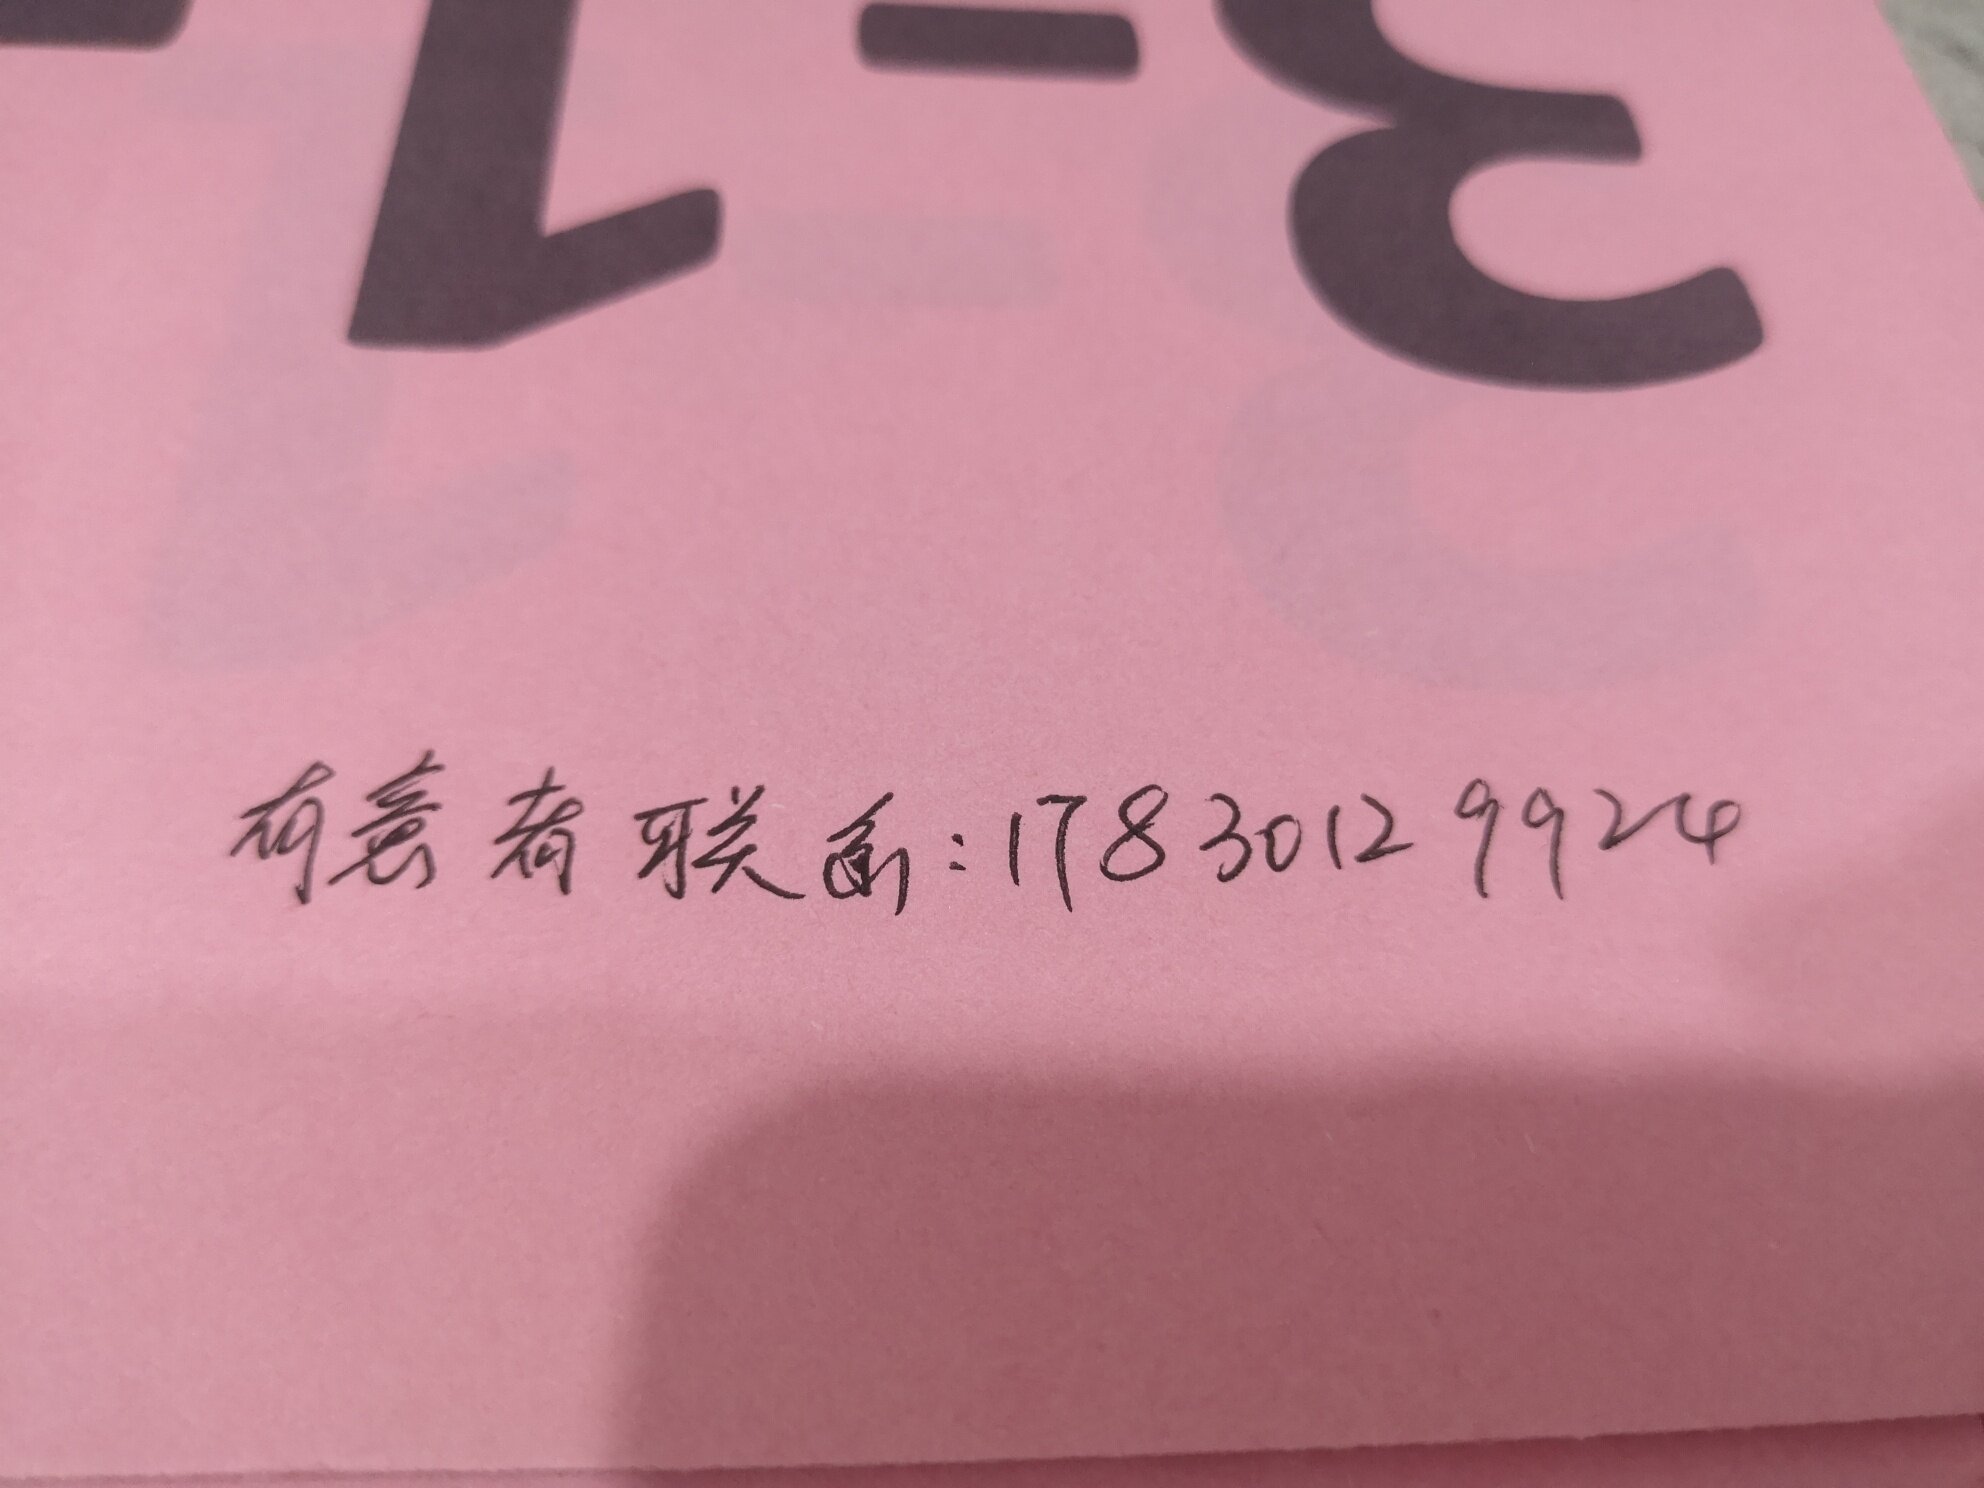 3-1-
有意者联系:17830129924